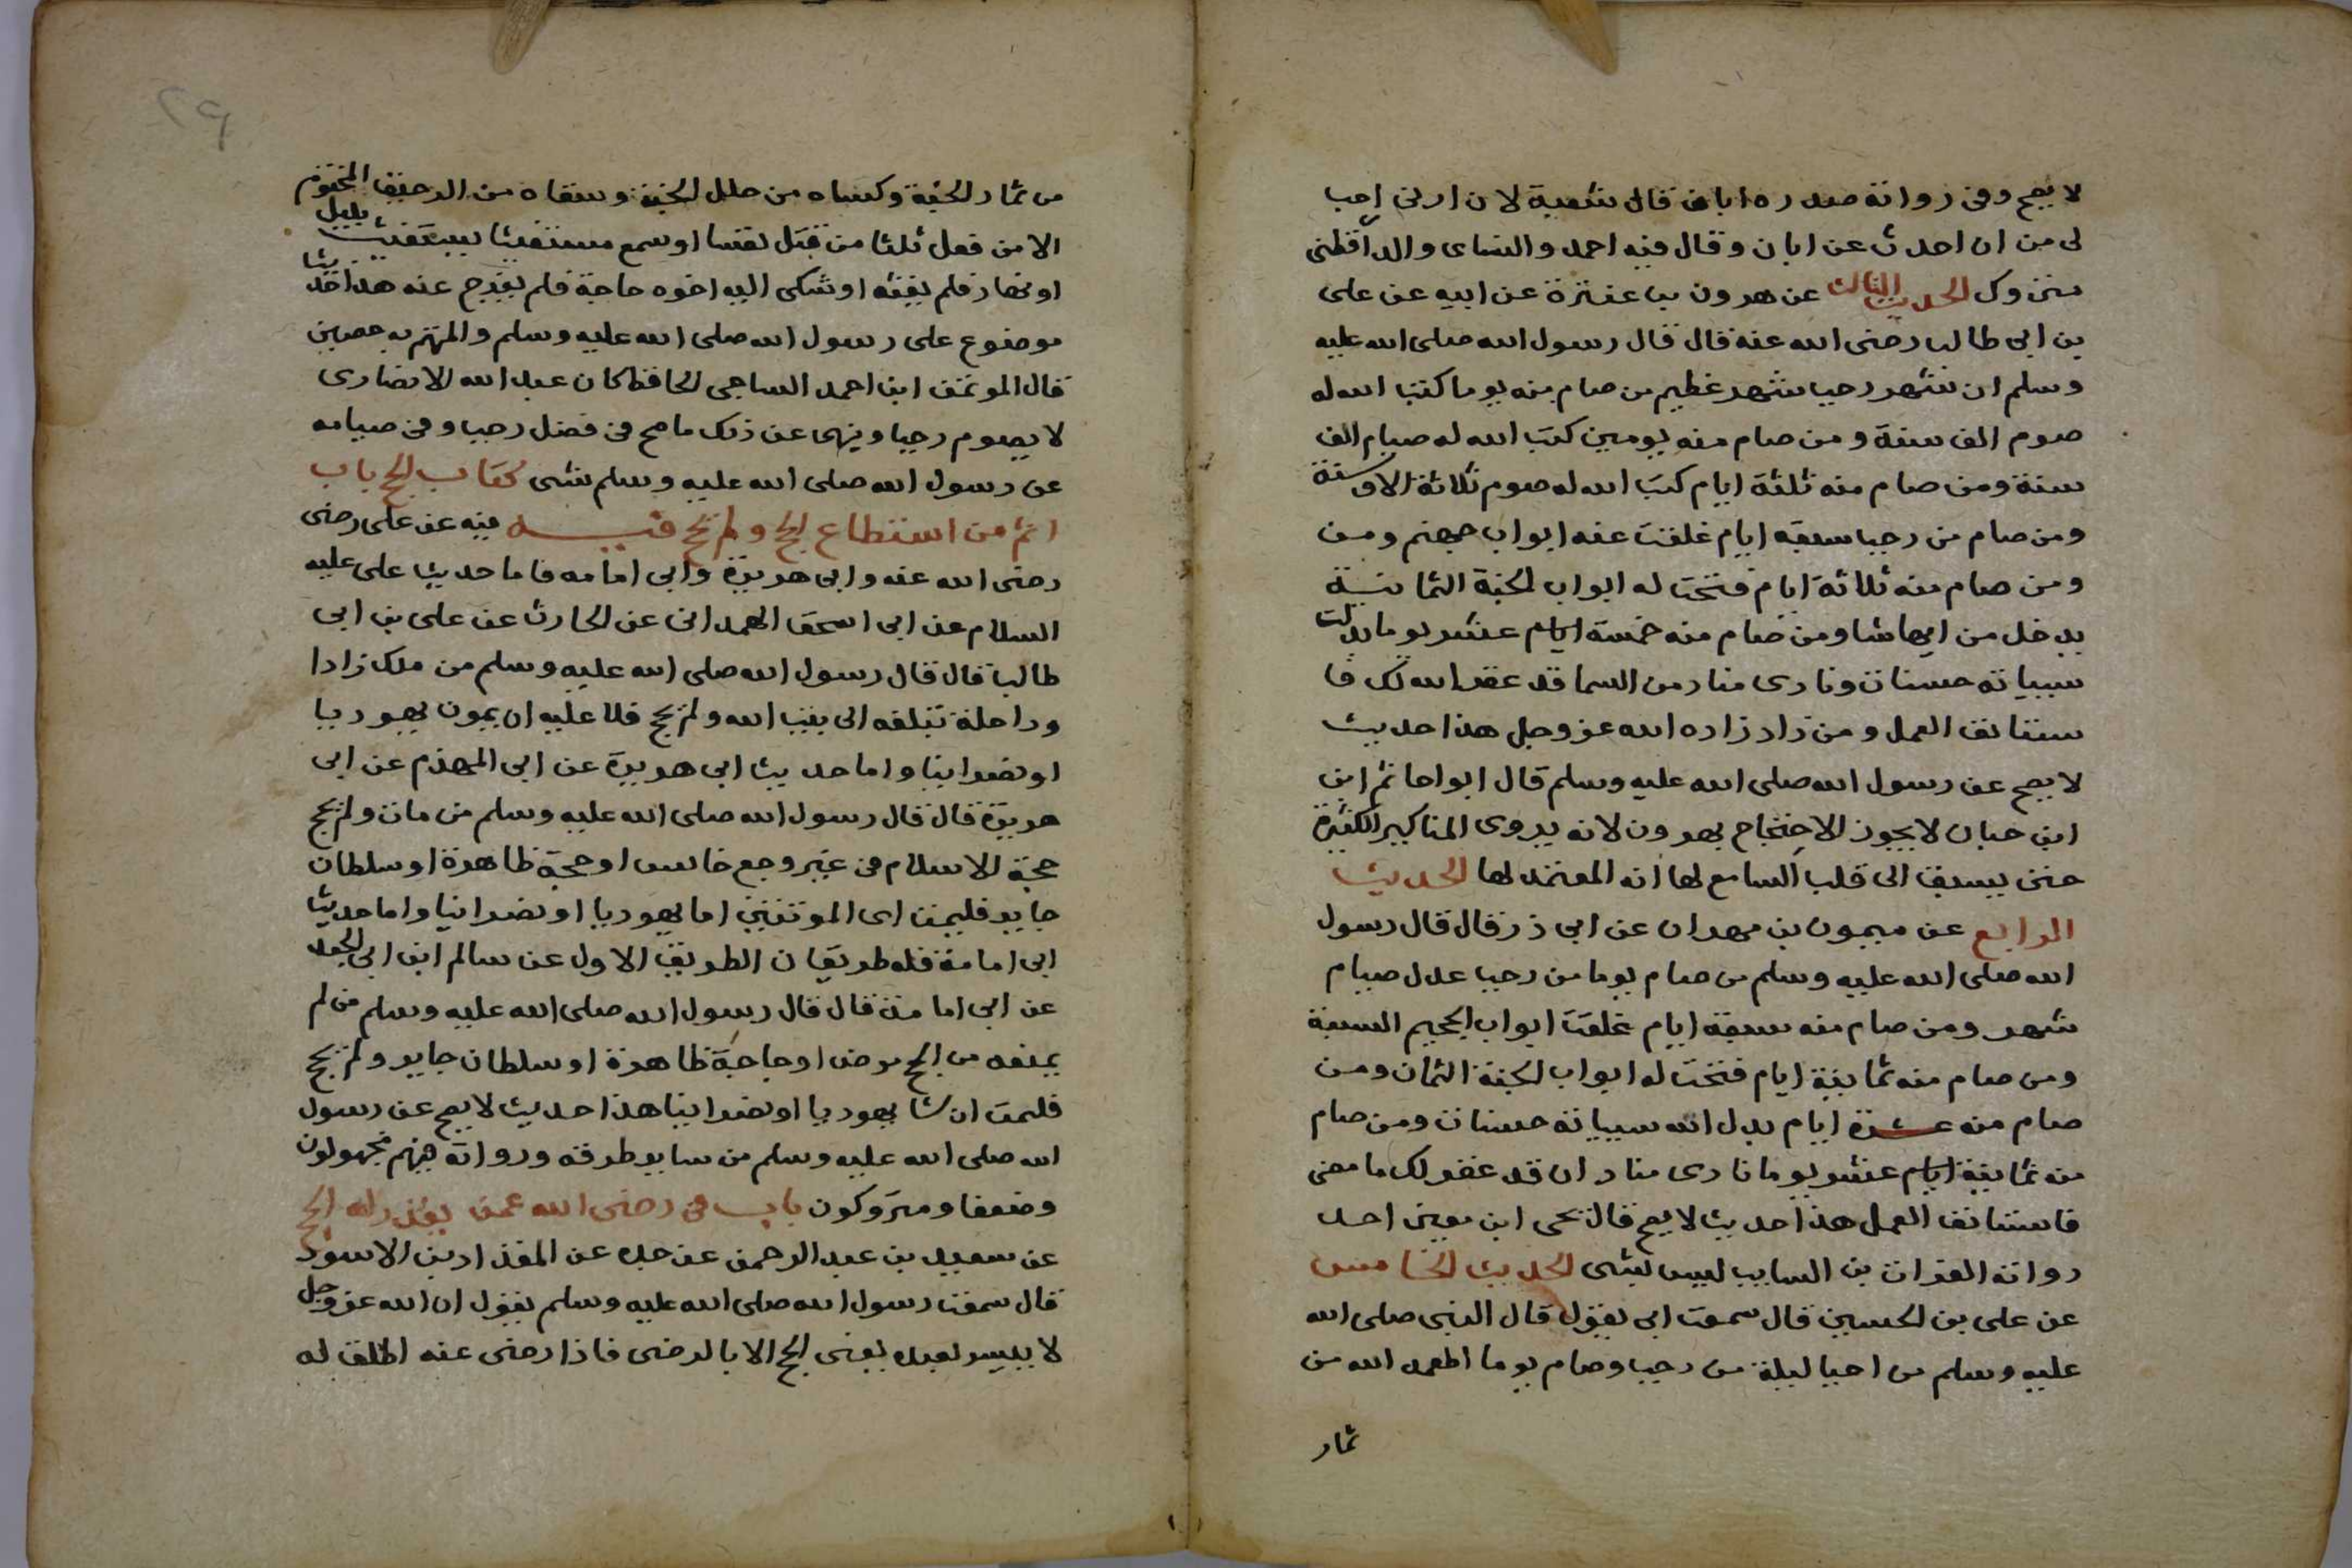 لا يصح وفى رواته صدره ابان قال شعبة لان ازنى احب
لى من ان احدث عن ابان وقال فيه احمد والنساى والدارقطنى
متروك الحديث الثالث عن هرون بن عنترة عن ابيه عن على
بن ابى طالب رضى الله عنه قال قال رسول الله صلى الله عليه
وسلم ان شهر رجب شهر عظيم من صام منه يوما كتب الله له
صوم الف سنة ومن صام منه يومين كتب الله له صيام الف
سنة ومن صام منه ثلثة ايام كتب الله له صوم ثلاثة الاف سنة
ومن صام من رجب سبعة ايام غلقت عنه ابواب جهنم ومن
ومن صام منه ثلاثة ايام فتحت له ابواب الجنة الثمانية
يدخل من ايها شا ومن صام منه خمسة ايام عشر يوما بدلت
سيياته حسنات ونادى مناد من السما قد غفر الله لك فا
ستتانف العمل ومن زاد زاده الله عز وجل هذا حديث
لا يصح عن رسول الله صلى الله عليه وسلم قال ابوا حاتم ابن
ابن حبان لا يجوز الاحتجاج بهرون لانه يروى المناكير الكثيرة
حتى يسبق الى قلب السامع لها انه المعتمد لها الحديث
الرابع عن ميمون بن مهران عن ابى ذر قال قال رسول
الله صلى الله عليه وسلم من صام يوما من رجب عدل صيام
شهر ومن صام منه سبعة ايام غلقت ابواب الجحيم السبعة
ومن صام منه ثمانية ايام فتحت له ابواب الجنة الثمان ومن
صام منه عشرة ايام بدل الله سيياته حسنات ومن صام
منه ثمانية ايام عشر يوما نادى مناد ان قد غفر لك ما مضى
فاستتانف العمل هذا حديث لا يصح قال يحى ابن معين احد
رواته الفرات بن السايب ليس بشى الحديث الخامس
عن على بن الحسين قال سمعت ابى يقول قال النبى صلى الله
عليه وسلم من احيا ليلة من رجب وصام يوما اطعمه الله من
ثمار
٢٩
من ثمار الجنة وكساه من حلل الجنة وسقاه من الرحيق المختوم
الا من فعل ثلثا من قتل نفسا او سمع مستغيثا يستغيث بليل
او نهار فلم يغثه او شكى اليه اخوه حاجة فلم يفرج عنه هذا حديثا
موضوع على رسول الله صلى الله عليه وسلم والمتهم به حصين
قال الموتمن ابن احمد الساجى الحافظ كان عبد الله الانصارى
لا يصوم رجبا وينهى عن ذلك ما صح فى فضل رجب وفى صيامه
عن رسول الله صلى الله عليه وسلم شى كتاب الحج باب
اثم من استطاع الحج ولم يحج فيه فيه عن على رضى
رضى الله عنه وابى هريرة وابى امامه فاما حديث على عليه
السلام عن ابى اسحق الهمدانى عن الحارث عن على بن ابى
طالب قال قال رسول الله صلى الله عليه وسلم من ملك زادا
وراحلة تبلغه الى بيت الله ولم يحج فلا عليه ان يموت يهوديا
او نصرانيا واما حديث ابى هريرة عن ابى المهزم عن ابى
هريرة قال قال رسول الله صلى الله عليه وسلم من مات ولم يحج
حجة الاسلام فى غير وجع حابس او حجة ظاهرة او سلطان
جاير فليمت اى الموتتين اما يهوديا او نصرانيا واما حديث
ابى امامة فله طريقان الطريق الاول عن سالم ابن ابى الجعد
عن ابى امامة قال قال رسول الله صلى الله عليه وسلم من لم
يمنعه من الحج مرض او حاجة ظاهرة او سلطان جاير ولم يحج
فليمت ان شا يهوديا او نصرانيا هذا حديث لا يصح عن رسول
الله صلى الله عليه وسلم من ساير طرقه ورواته فيهم مجهولون
وضعفا ومتروكون باب فى رضى الله عمن الحج
عن سعيد بن عبد الرحمن عن جده عن المقداد بن الاسود
قال سمعت رسول الله صلى الله عليه وسلم يقول ان الله عز وجل
لا ييسر لعبده يعنى الحج الا بالرضى فاذا رضى عنه اطلق له